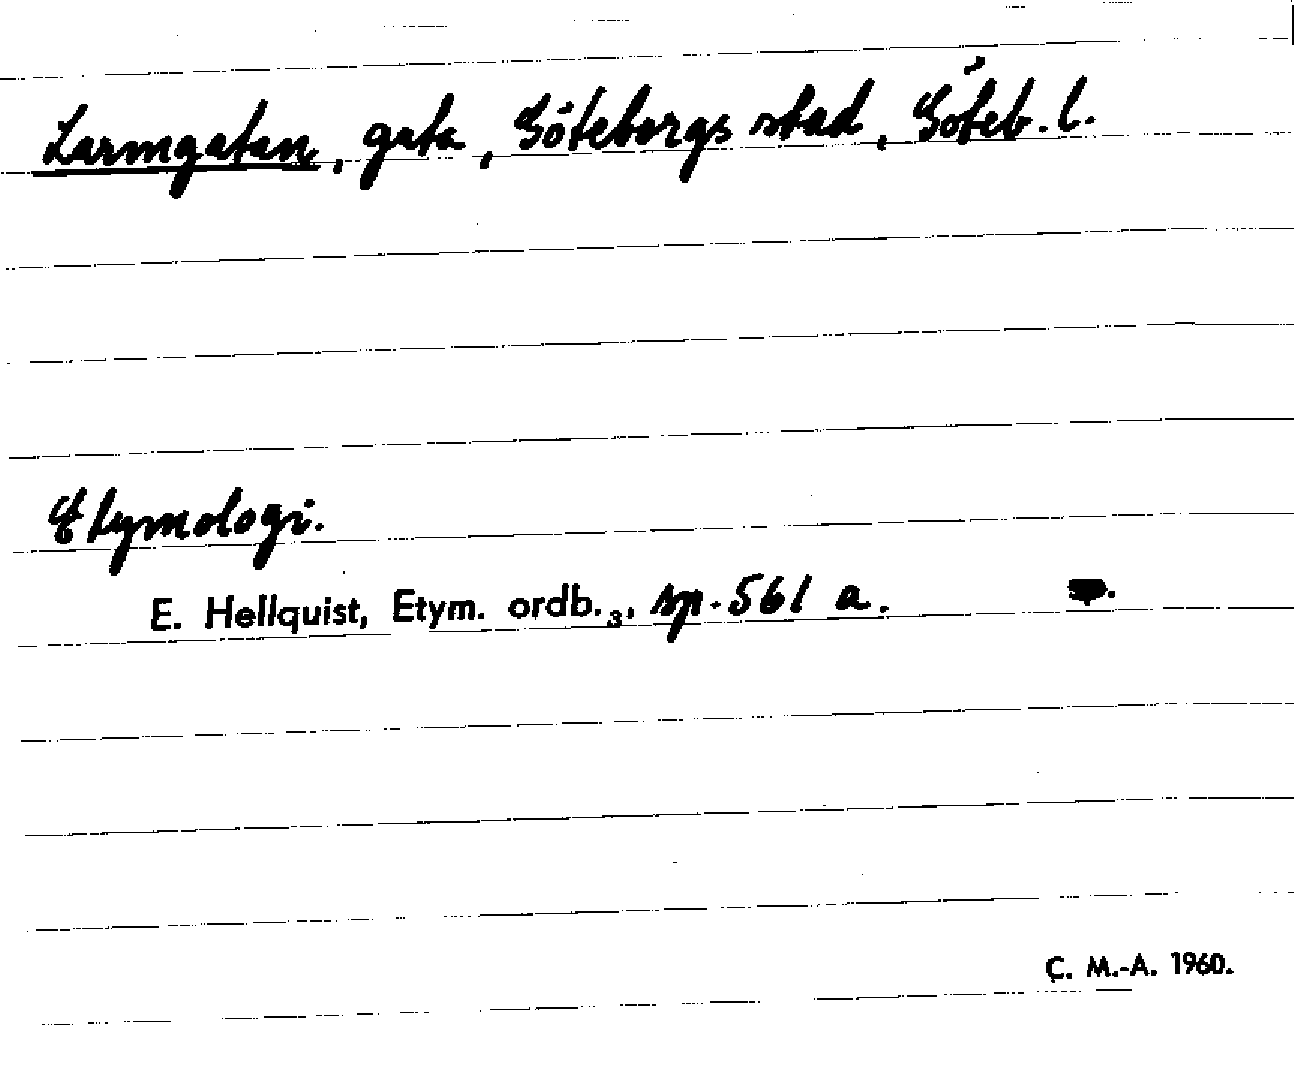 Larmgatan, gata, Göteborgs stad, Göteb. l.
Etymologi.
E. Hellquist, Etym. ordb.₃, sp. 561 a.
C. M.-A. 1960.